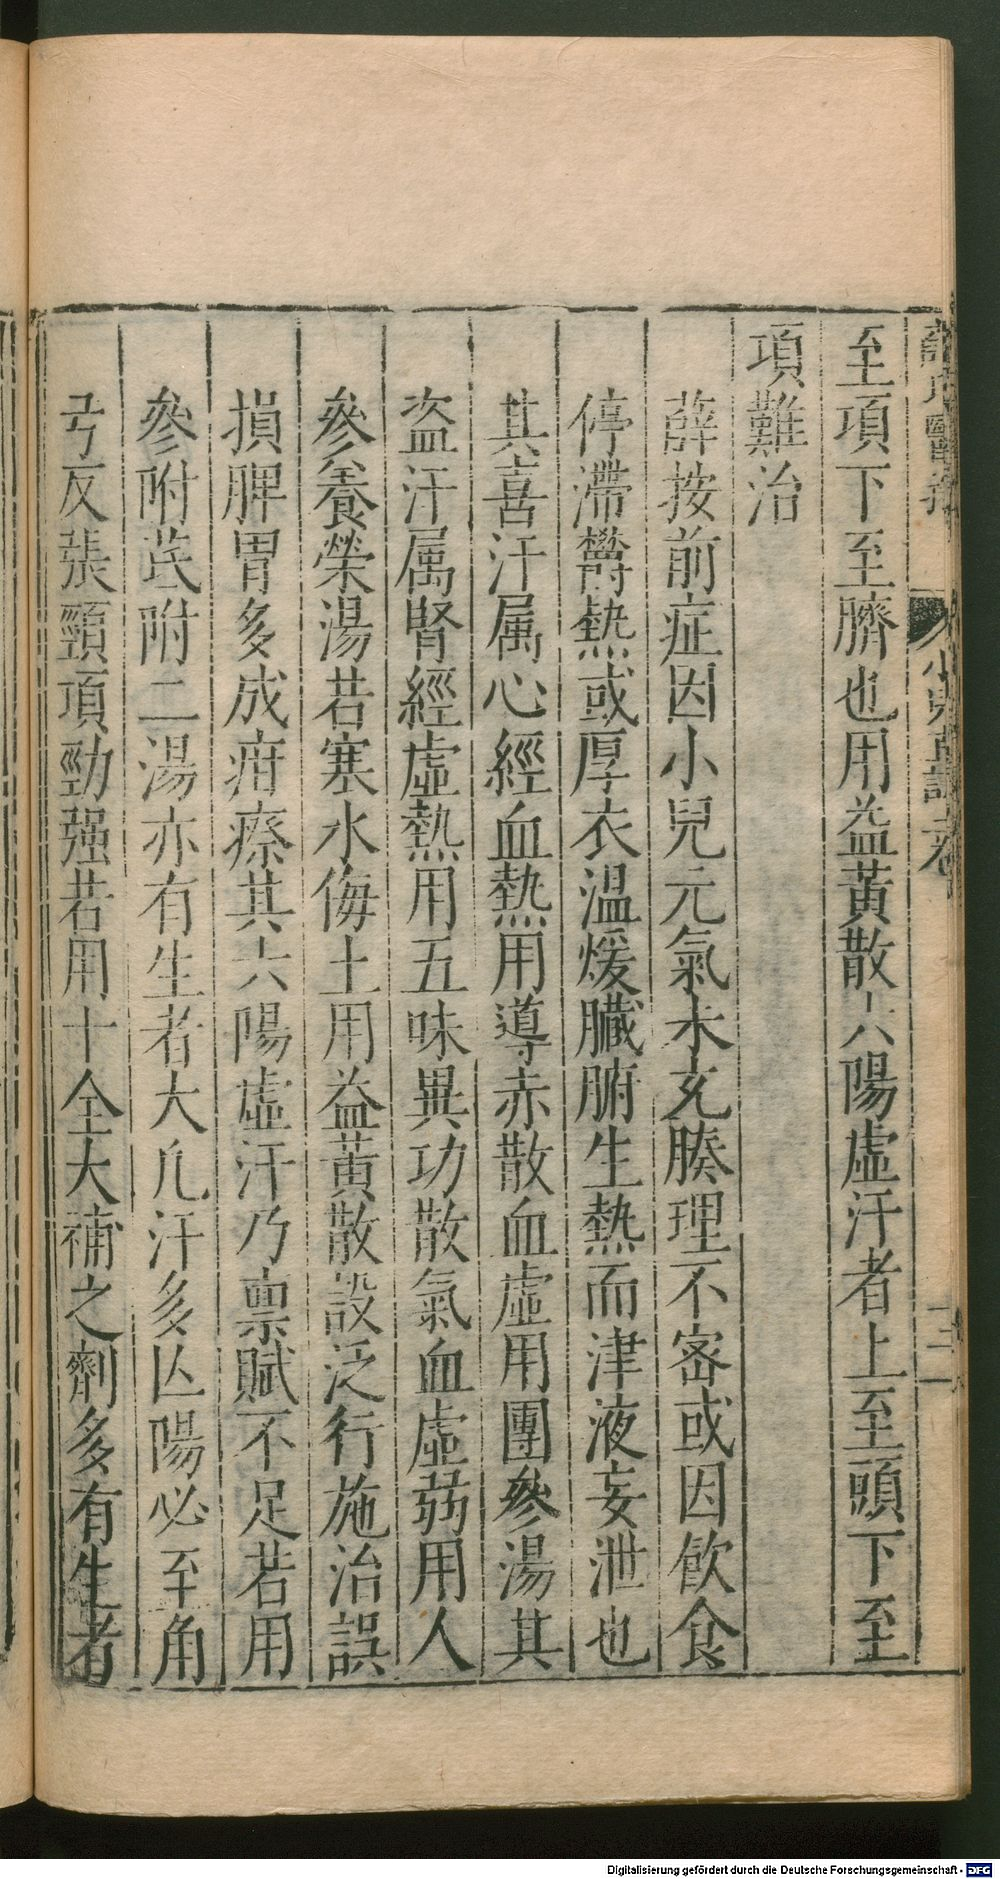 薛氏醫案 小兒直訣 卷 二
至項下至臍也用益黃散六陽虛汗者上至頭下至
項難治
薛按前症因小兒元氣未充腠理不密或因飲食
停滯欝熱或厚衣温煖臟腑生熱而津液妄泄也
其喜汗属心經血熱用導赤散血虛用團參湯其
盗汗属腎經虛熱用五味異功散氣血虛弱用人
參養榮湯若寒水侮土用益黃散設泛行施治誤
損脾胃多成疳瘵其六陽虛汗乃禀賦不足若用
參附芪附二湯亦有生者大凢汗多亾陽必至角
弓反張頸項勁强若用十全大補之劑多有生者
Digitalisierung gefördert durch die Deutsche Forschungsgemeinschaft - DFG